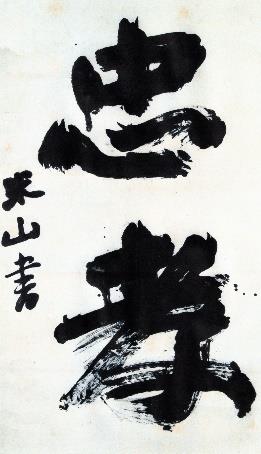 忠孝
米山書